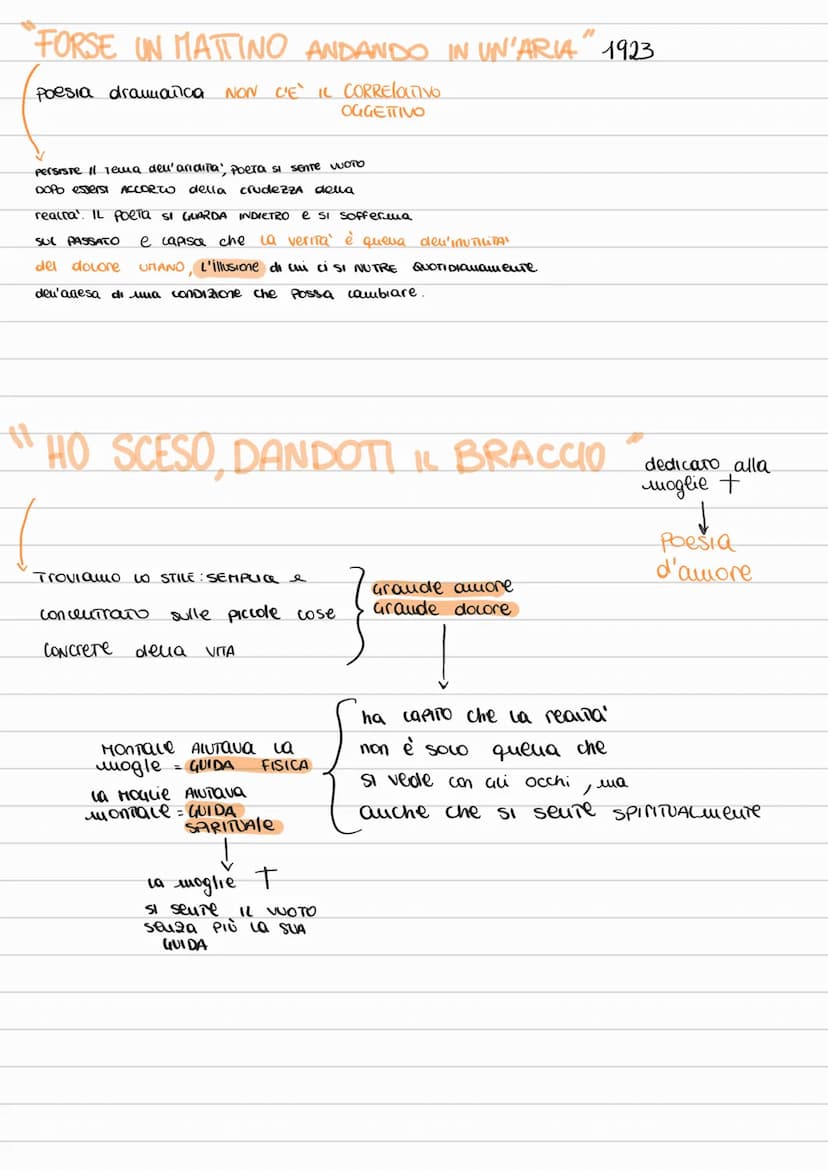 "FORSE UN MATTINO ANDANDO IN UN'ARIA" 1923
poesia drammatica NON C'È IL CORRELATIVO
OGGETTIVO
PERSISTE il tema dell'aridità, poeta si sente vuoto
DOPO essersi ACCORTO della crudezza della
realtà. IL POETA SI GUARDA INDIETRO e si sofferma
SUL PASSATO e capisce che la verità è quella dell'inutilità
del dolore UMANO, l'illusione di cui ci si NUTRE QUOTIDIANAMENTE
dell'attesa di una CONDIZIONE che possa cambiare.
"HO SCESO, DANDOTI IL BRACCIO"
dedicato alla
moglie †
Poesia
d'amore
TROVIAMO LO STILE: SEMPLICE e
concentrato sulle piccole cose
CONCRETE della VITA
Grande amore
Grande dolore
ha CAPITO che la realtà
non è solo quella che
si vede con gli occhi, ma
anche che si sente SPIRITUALmente
MONTALE AIUTAVA la
mogle = GUIDA FISICA
la MOGLIE AIUTAVA
montale = GUIDA
SARITUALE
la moglie †
si sente IL VUOTO
senza PIÙ la SUA
GUIDA